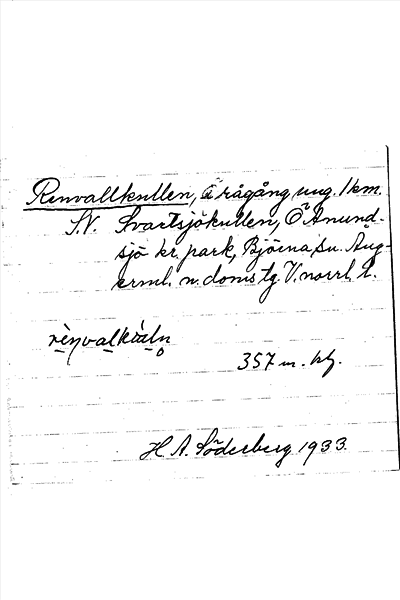 Renvallkullen, i rågång ung. 1 km.
S.V. Svartsjökullen, Ö Amund-
sjö kr. park, Björna sn. Ång-
erml. n. doms tg. V. norrl. l.
357 m. hlg.
H. A. Söderberg 1933.